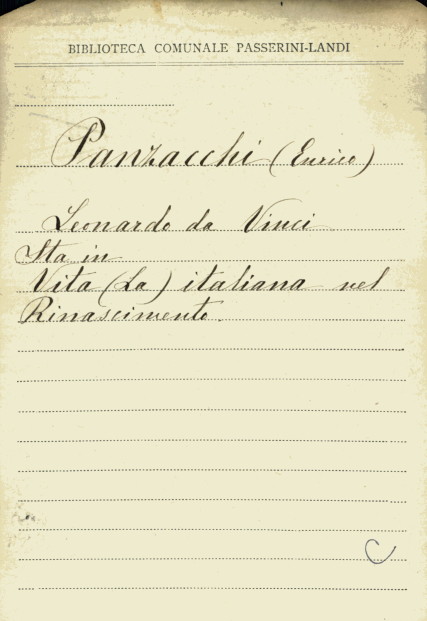 BIBLIOTECA COMUNALE PASSERINI-LANDI
Panzacchi (Enrico)
Leonardo da Vinci
Sta in
Vita (La) italiana nel
Rinascimento.
C